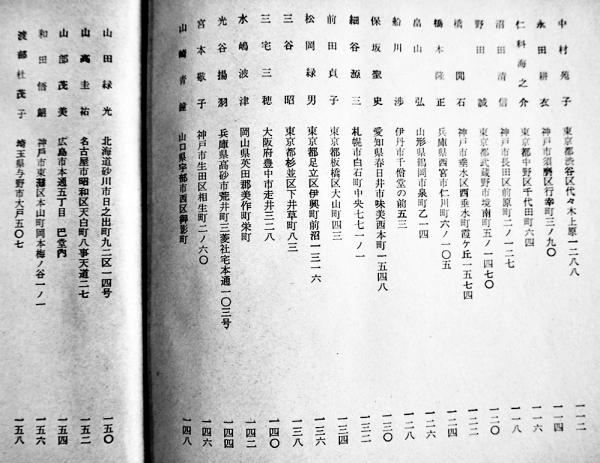 中村苑子 東京都渋谷区代々木上原一二八八 一一二
永田耕衣 神戸市須磨区行幸町三ノ九〇 一一四
仁科海之介 東京都中野区千代田町六四 一一六
沼田清信 神戸市長田区前原町二ノ一二七 一一八
野田誠 東京都武蔵野市境南町五ノ一四七〇 一二〇
橋閒石 神戸市垂水区西垂水町霞ケ丘一五七四 一二二
橋本隆正 兵庫県西宮市仁川町六ノ一〇五 一二四
畠山弘 山形県鶴岡市泉町乙一四 一二六
船川渉 伊丹市千僧堂の前五三 一二八
保坂聖史 愛知県春日井市味美西本町一五四八 一三〇
細谷源三 札幌市白石町中央七七一ノ一 一三二
前田貞子 東京都板橋区大山町四三 一三四
松岡緑男 東京都足立区伊興町前沼一三一六 一三六
三谷昭 東京都杉並区下井草町八三 一三八
三宅三穂 大阪府豊中市走井三二八 一四〇
水嶋波津 岡山県英田郡美作町栄町 一四二
光谷揚羽 兵庫県高砂市荒井町三菱社宅本通一〇三号 一四四
宮本敬子 神戸市生田区相生町二ノ六〇 一四六
山崎青鐘 山口県宇部市西区御影町 一四八
山田緑光 北海道砂川市日之出町九二区一四号 一五〇
山高圭祐 名古屋市昭和区天白町八事天道二七 一五二
山部茂美 広島市本通五丁目 巴堂内 一五四
和田悟朗 神戸市東灘区本山町岡本梅ノ谷一ノ一 一五六
渡部杜茂子 埼玉県与野市大戸五〇七 一五八